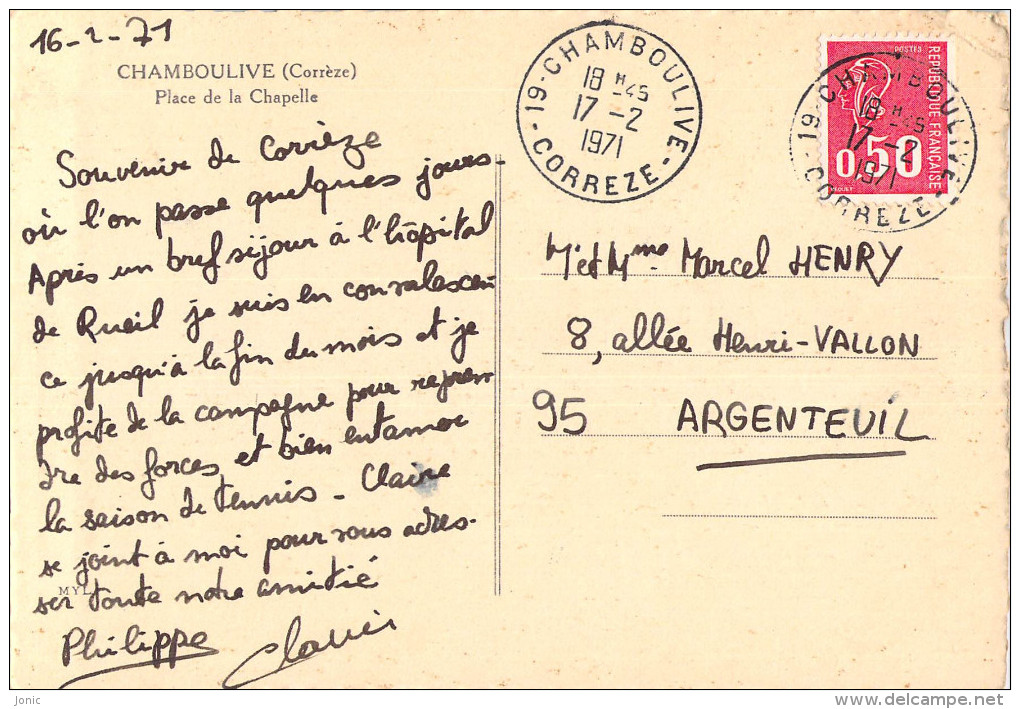 16-2-71
CHAMBOULIVE (Corrèze)
Place de la Chapelle
Souvenir de Corrèze
où l'on passe quelques jours.
Après un bref séjour à l'hôpital
de Rueil je suis en convalescen
ce jusqu'à la fin du mois et je
profite de la campagne pour repren
dre des forces et bien entamer
la saison de tennis - Claire
se joint à moi pour vous adres-
ser toute notre amitié
MYL
Philippe
19 - CHAMBOULIVE -
18 H 45
17 - 2
1971
- CORREZE -
POSTES
REPUBLIQUE FRANÇAISE
0,50
19 - CHAMBOULIVE -
18 H 45
17 - 2
1971
- CORREZE -
Mr et Mme Marcel HENRY
8, allée Henri-VALLON
95 ARGENTEUIL
Jonic
delcampe.net